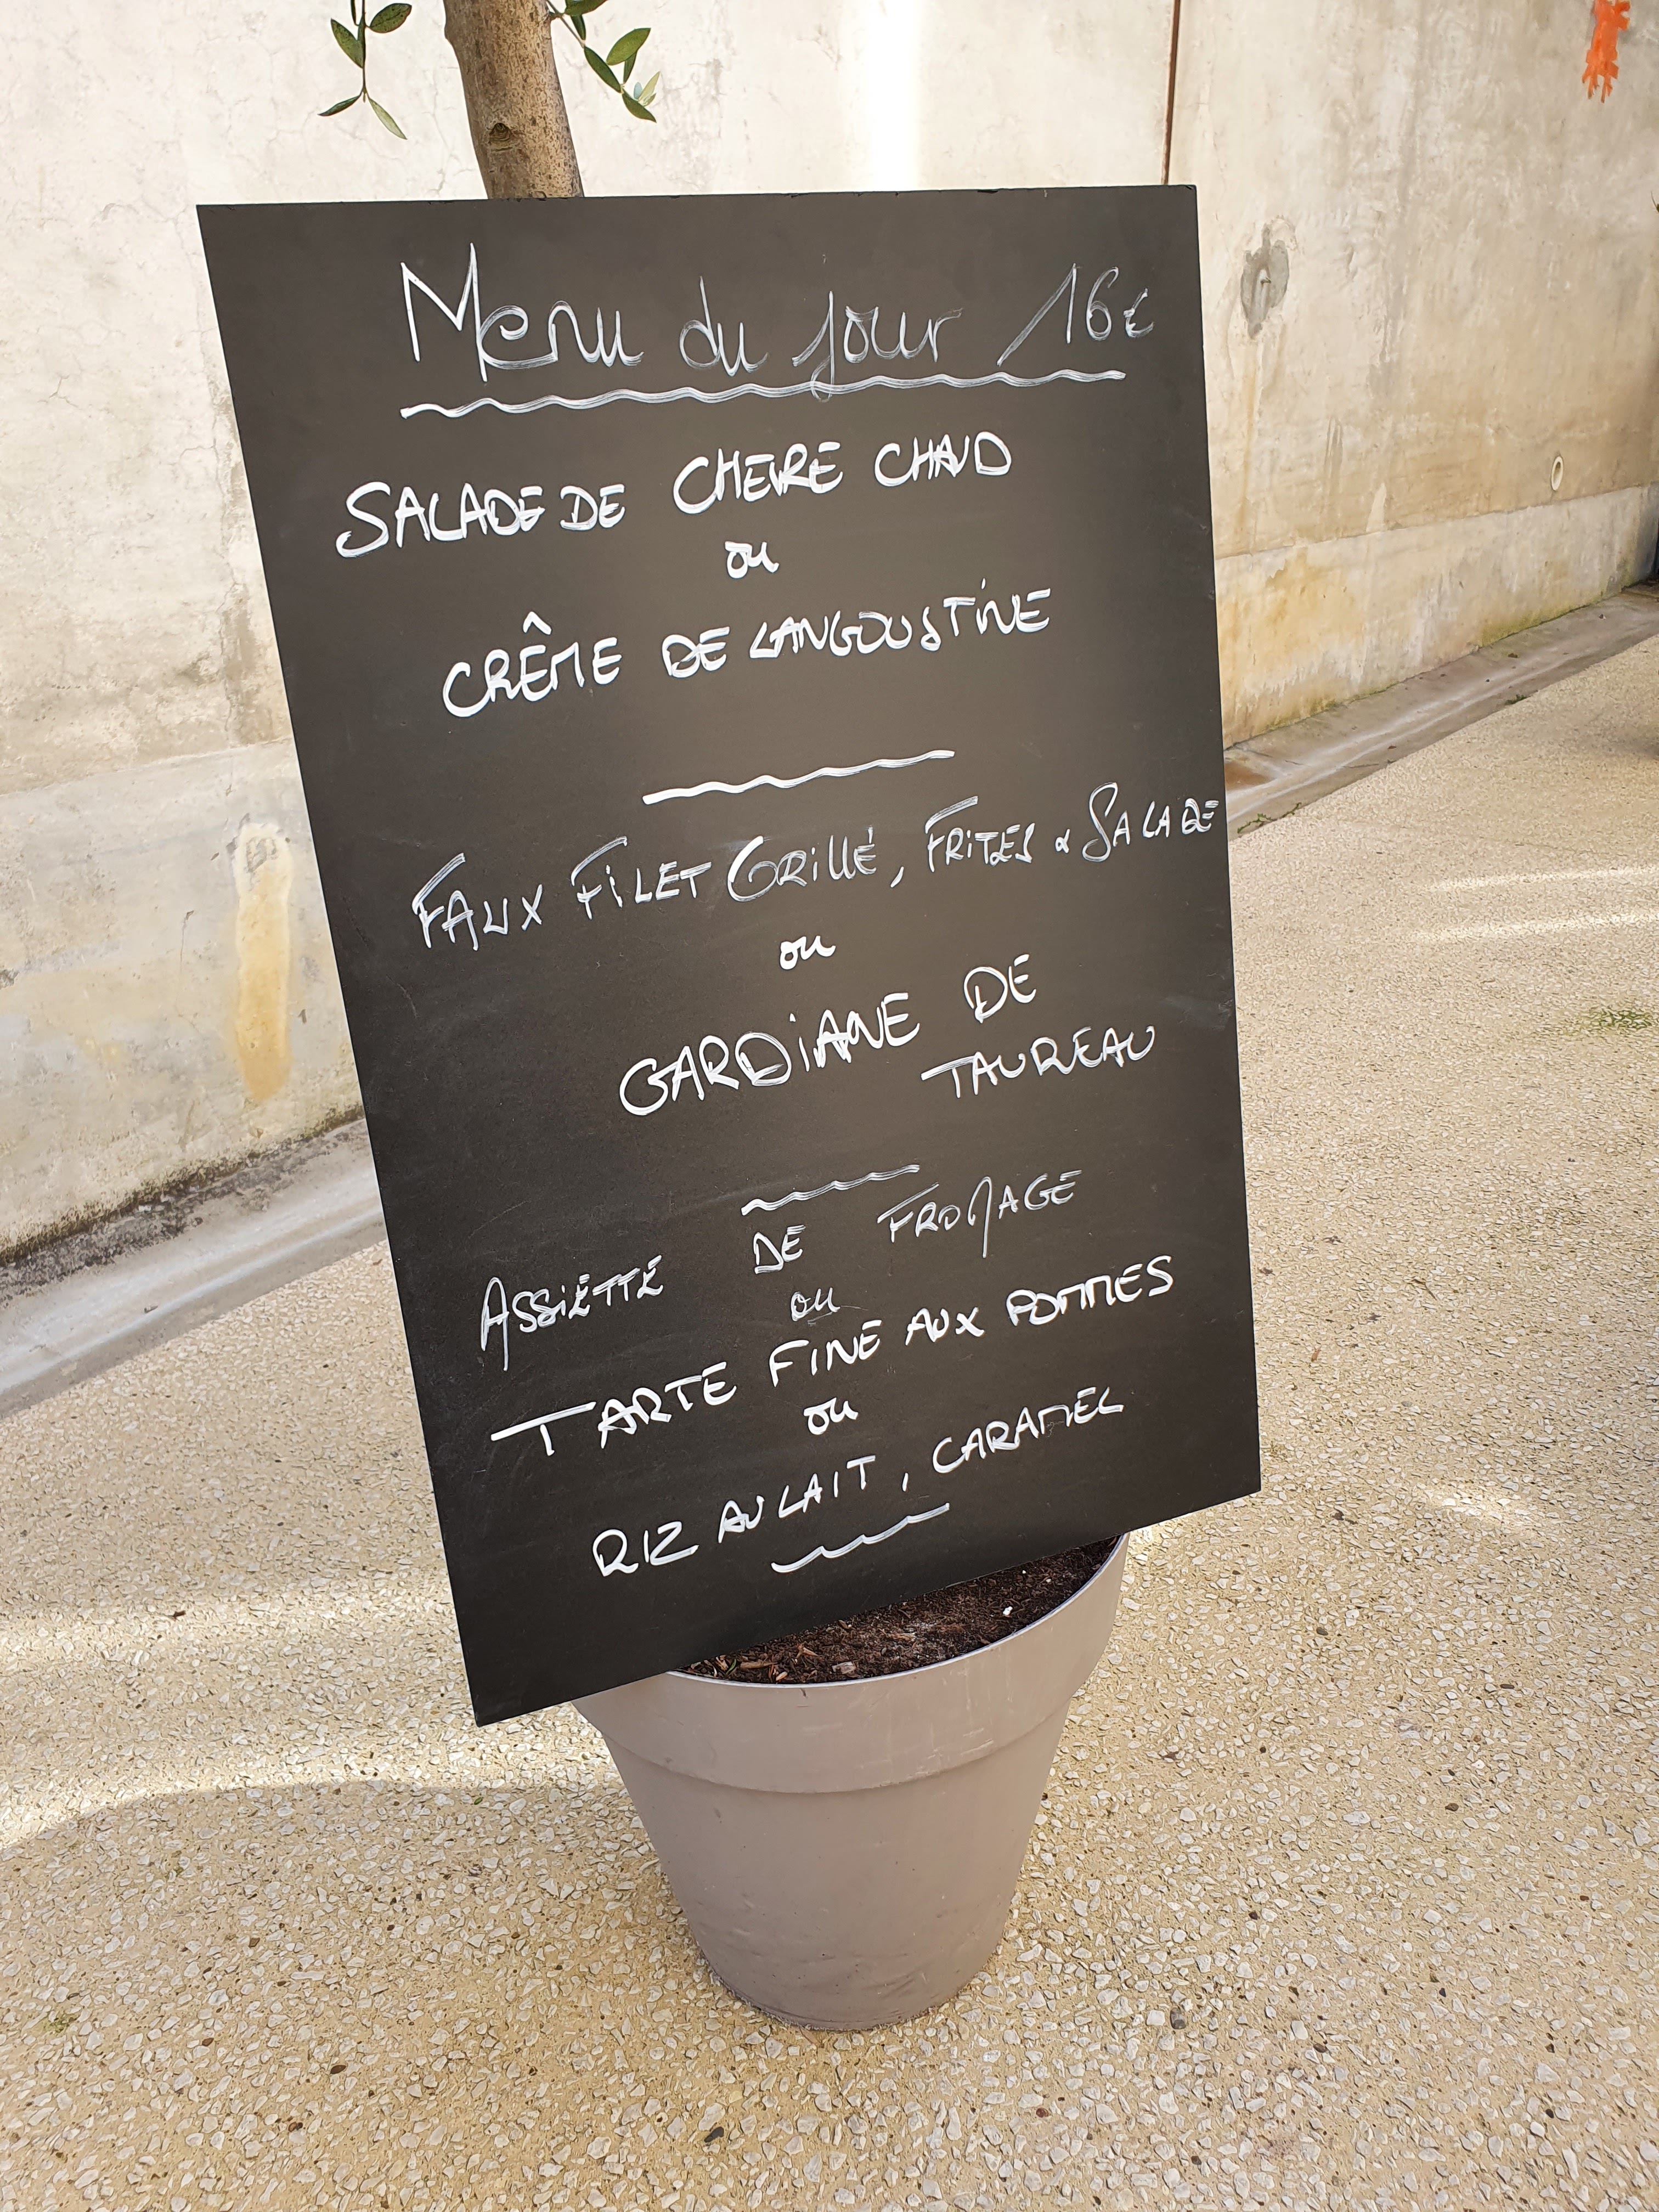 Menu du jour 16€
SALADE DE CHEVRE CHAUD
ou
CRÊME DE LANGOUSTINE
FAUX FILET GRILLÉ, FRITES & SALADE
ou
GARDIANE DE
TAUREAU
ASSIETTE DE FROMAGE
ou
TARTE FINE AUX POMMES
ou
RIZ AU LAIT, CARAMEL